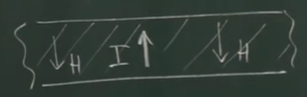 H I H